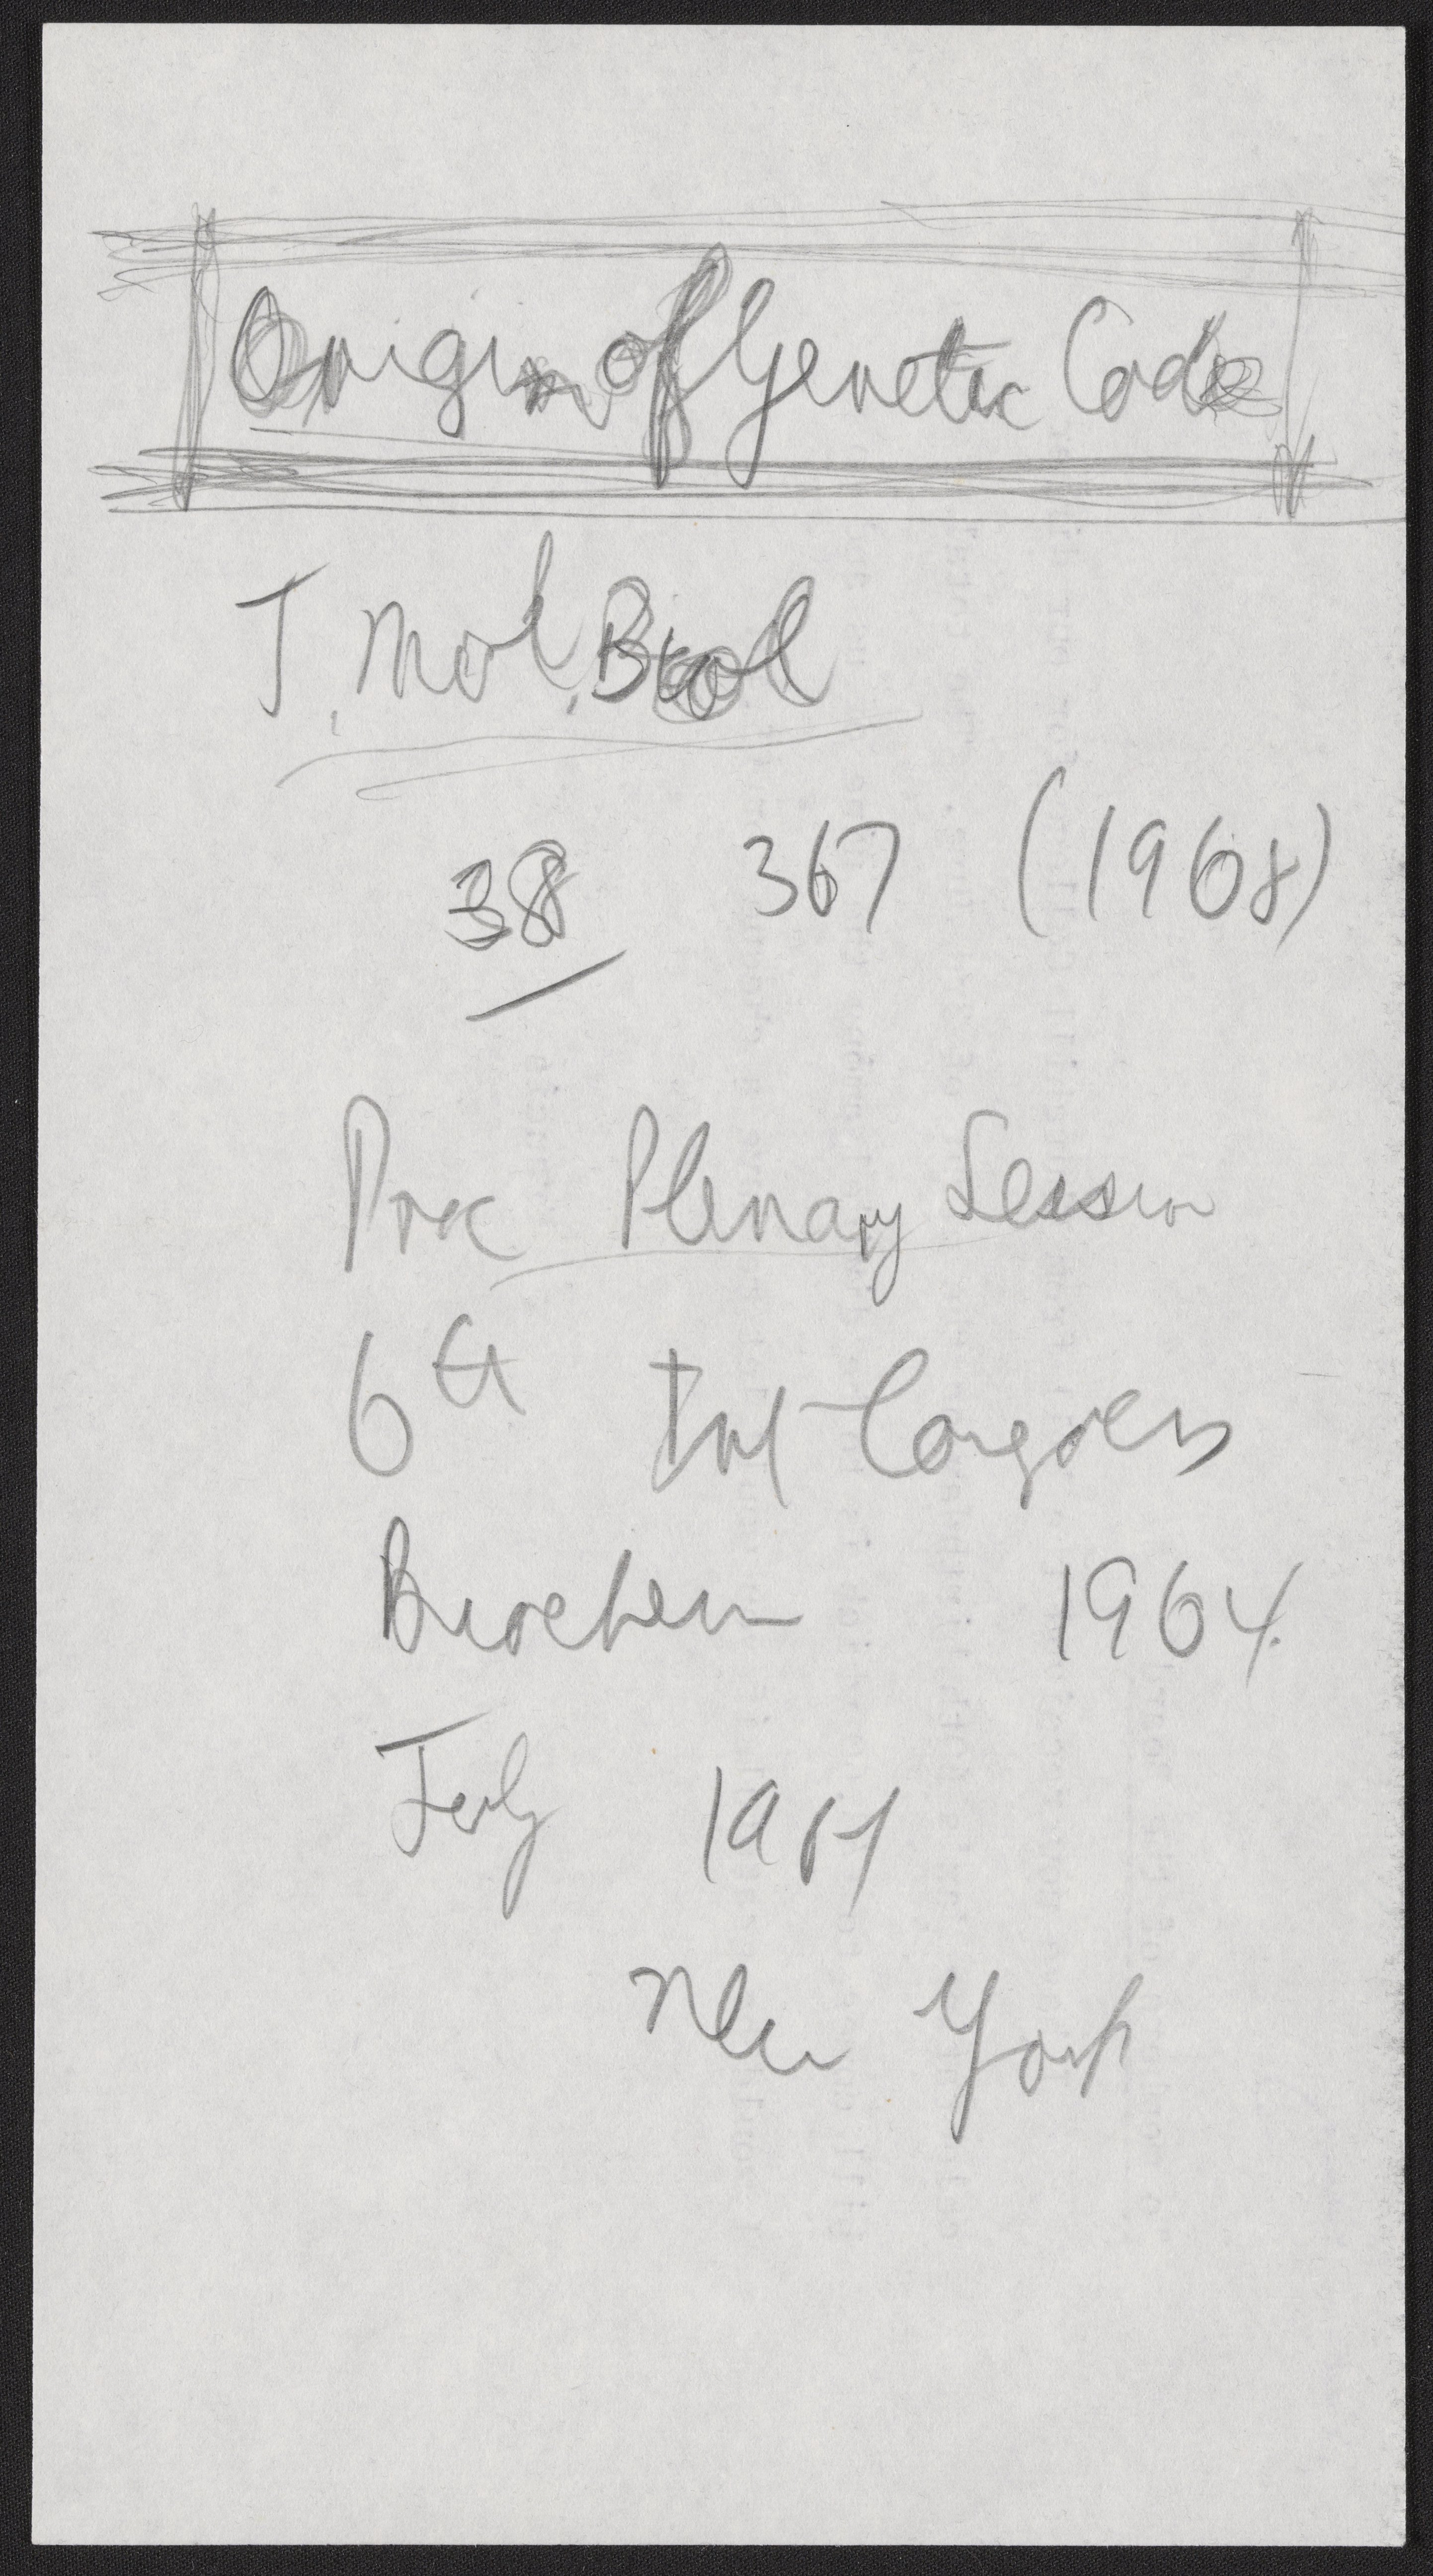 Origin of Genetic Code
J. Mol. Biol
38 367 (1968)
Proc Plenary Session
6th Int Congress
Biochem 1964.
July 1964
New York